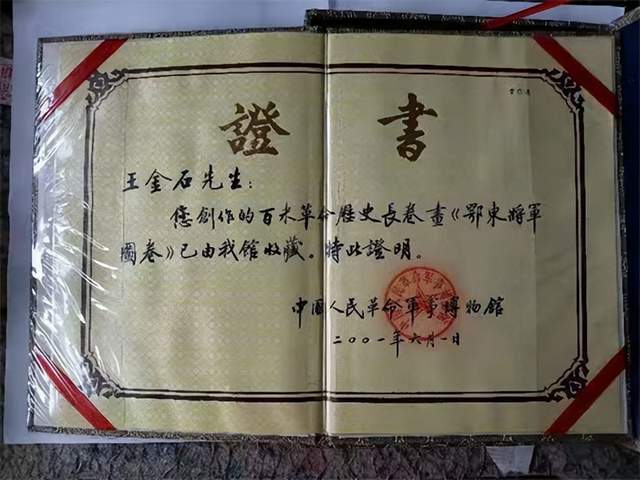 證書
王金石先生：
您創作的百米革命歷史長卷畫《鄂東將軍
圖卷》已由我館收藏。特此證明。
中國人民革命軍事博物館
二〇〇一年六月一日